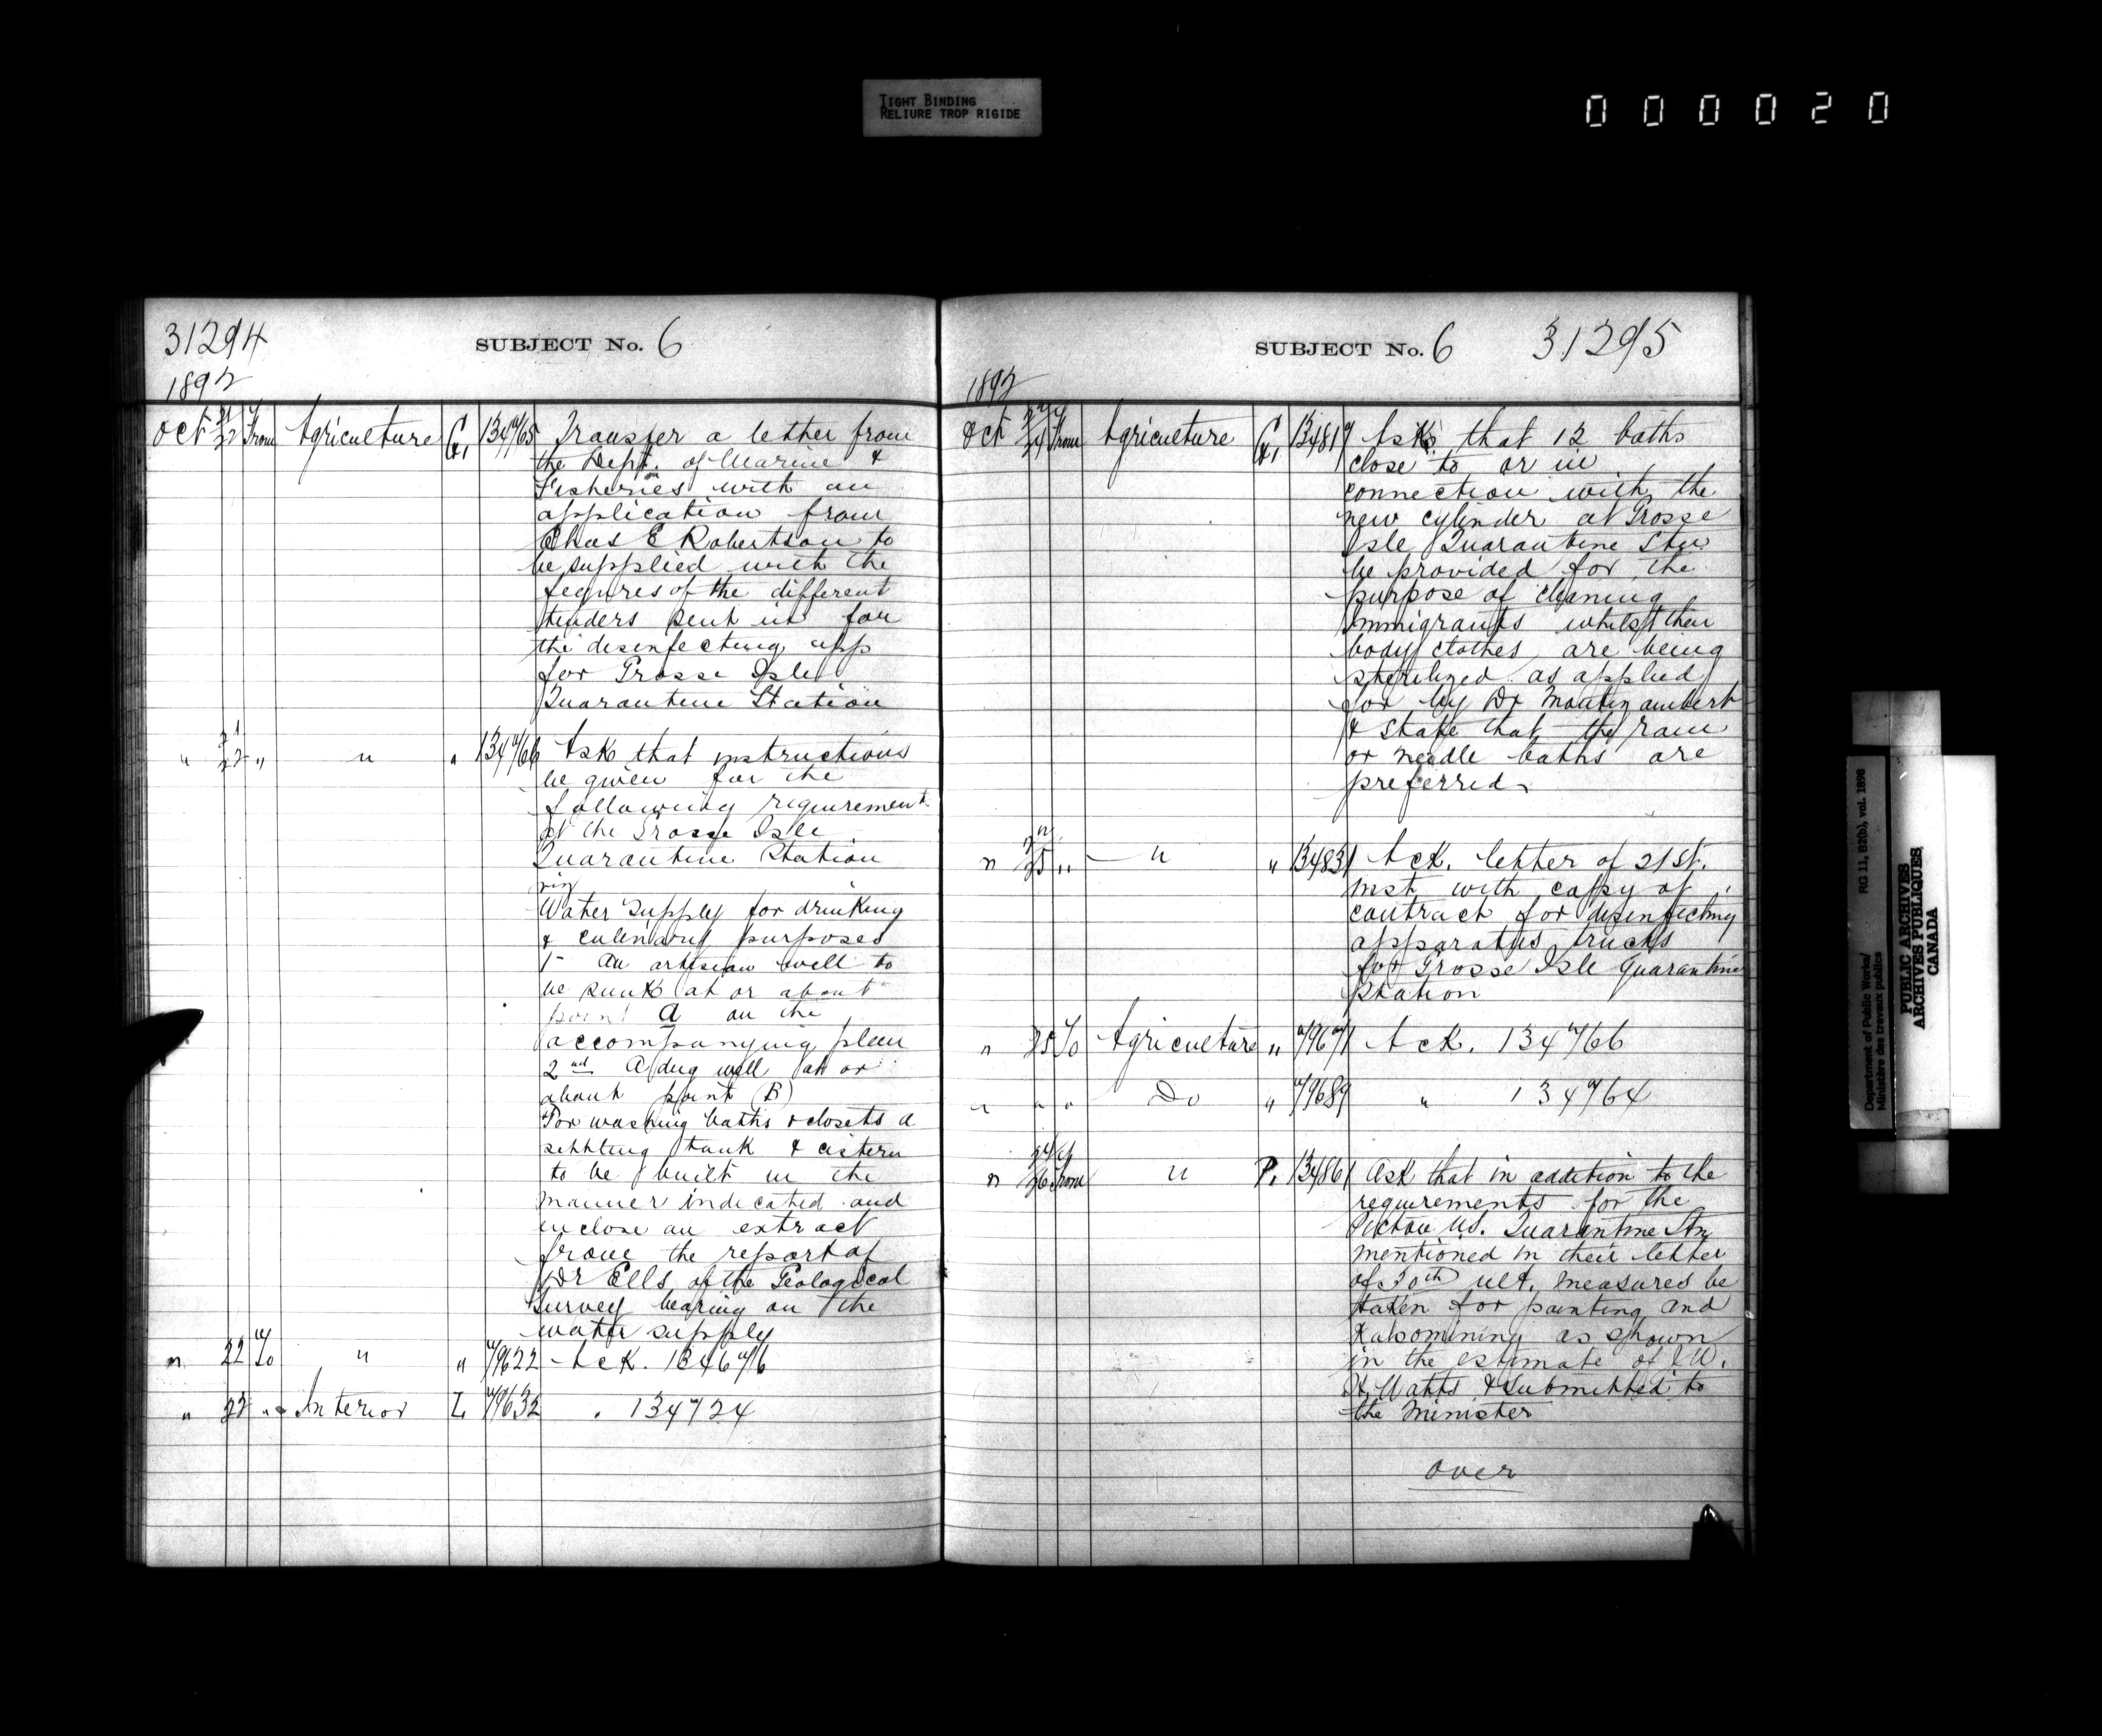 TIGHT BINDING
RELIURE TROP RIGIDE
000020
31294
SUBJECT No. 6
1892
Oct 21/22 From Agriculture G. 134765 Transfer a letter from
the Dept. of Marine &
Fisheries with an
application from
Chas E Robertson to
be supplied with the
fegures of the different
tenders sent in for
the desenfecting app
for Grosse Isle
Quarantine Station
" 21/22 " " " 134766 Ask that instructions
be given for the
following requirement
at the Grosse Isle
Quarantine Station
viz
Water Supply for drinking
& culinary purposes
1- An artesian well to
be sunk at or about
point A on the
accompanying plan
2nd A dug well at or
about point (B)
For washing baths & closets a
settting tank & cistern
to be built in the
manner indicated and
enclose an extract
from the report of
Dr Ells of the Geological
Survey bearing on the
water supply
" 22 To " " 79622 Ack. 134676
" 22 " Interior L 79632 " 134724
SUBJECT No. 6 31295
1892
Oct 22/24 From Agriculture G. 134817 Asks that 12 baths
close to or in
connection with the
new cylinder at Grosse
Isle Quarantine Stn
be provided for the
purpose of cleaning
Immigrants whilst their
body clothes are being
sterilized as applied
for by Dr Montizambert
& state that the rain
or needle baths are
preferred
" 22/25 " " " 134831 Ack. letter of 21st.
inst with copy of
contract for disenfecting
apparatus trucks
for Grosse Isle Quarantine
Station
" 25 To Agriculture " 79671 Ack. 134766
" " " Do " 79689 " 134764
" 24/26 From " P. 134861 Ask that in addition to the
requirements for the
Pictou N.S. Quarantine Stn
mentioned in their letter
of 30th ult. measures be
taken for painting and
Kalsomining as shown
in the estimate of C.W.
H. Watts & submitted to
the Minister
over
Department of Public Works/
Ministère des travaux publics
RG 11, B2(b), vol. 1898
PUBLIC ARCHIVES
ARCHIVES PUBLIQUES
CANADA